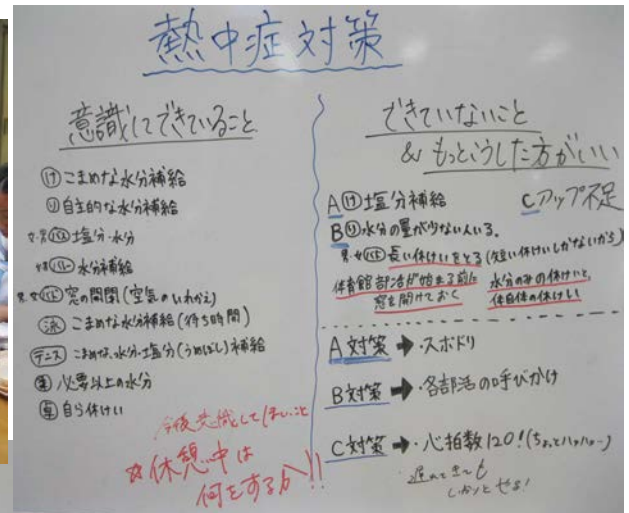 熱中症対策
意識してできていること
㋘ こまめな水分補給
㋷ 自主的な水分補給
女・男 バス 塩分・水分
バレー 水分補給
男・女 バド 窓の開閉 (空気のいれかえ)
泳 こまめな水分補給 (待ち時間)
テニス こまめな水分・塩分(うめぼし)補給
必要以上の水分
卓 自ら休けい
今後意識してほしいこと
☆休憩中は
何をするか!!
できていないこと
& もっとこうした方がいい
A ㋘ 塩分補給
Cアップ不足
B ㋷ 水分の量が少ない人いる。
男・女 バド 長い休けいをとる (短い休けいしかないから)
体育館部活が始まる前に
窓を開けておく
水分のみの休けいと、
体自体の休けい
A対策 ➡ ・スポドリ
B対策 ➡ ・各部活の呼びかけ
C対策 ➡ ・心拍数120!(ちょっとハァハァ〜)
・遅れてきても
しっかりとやる!